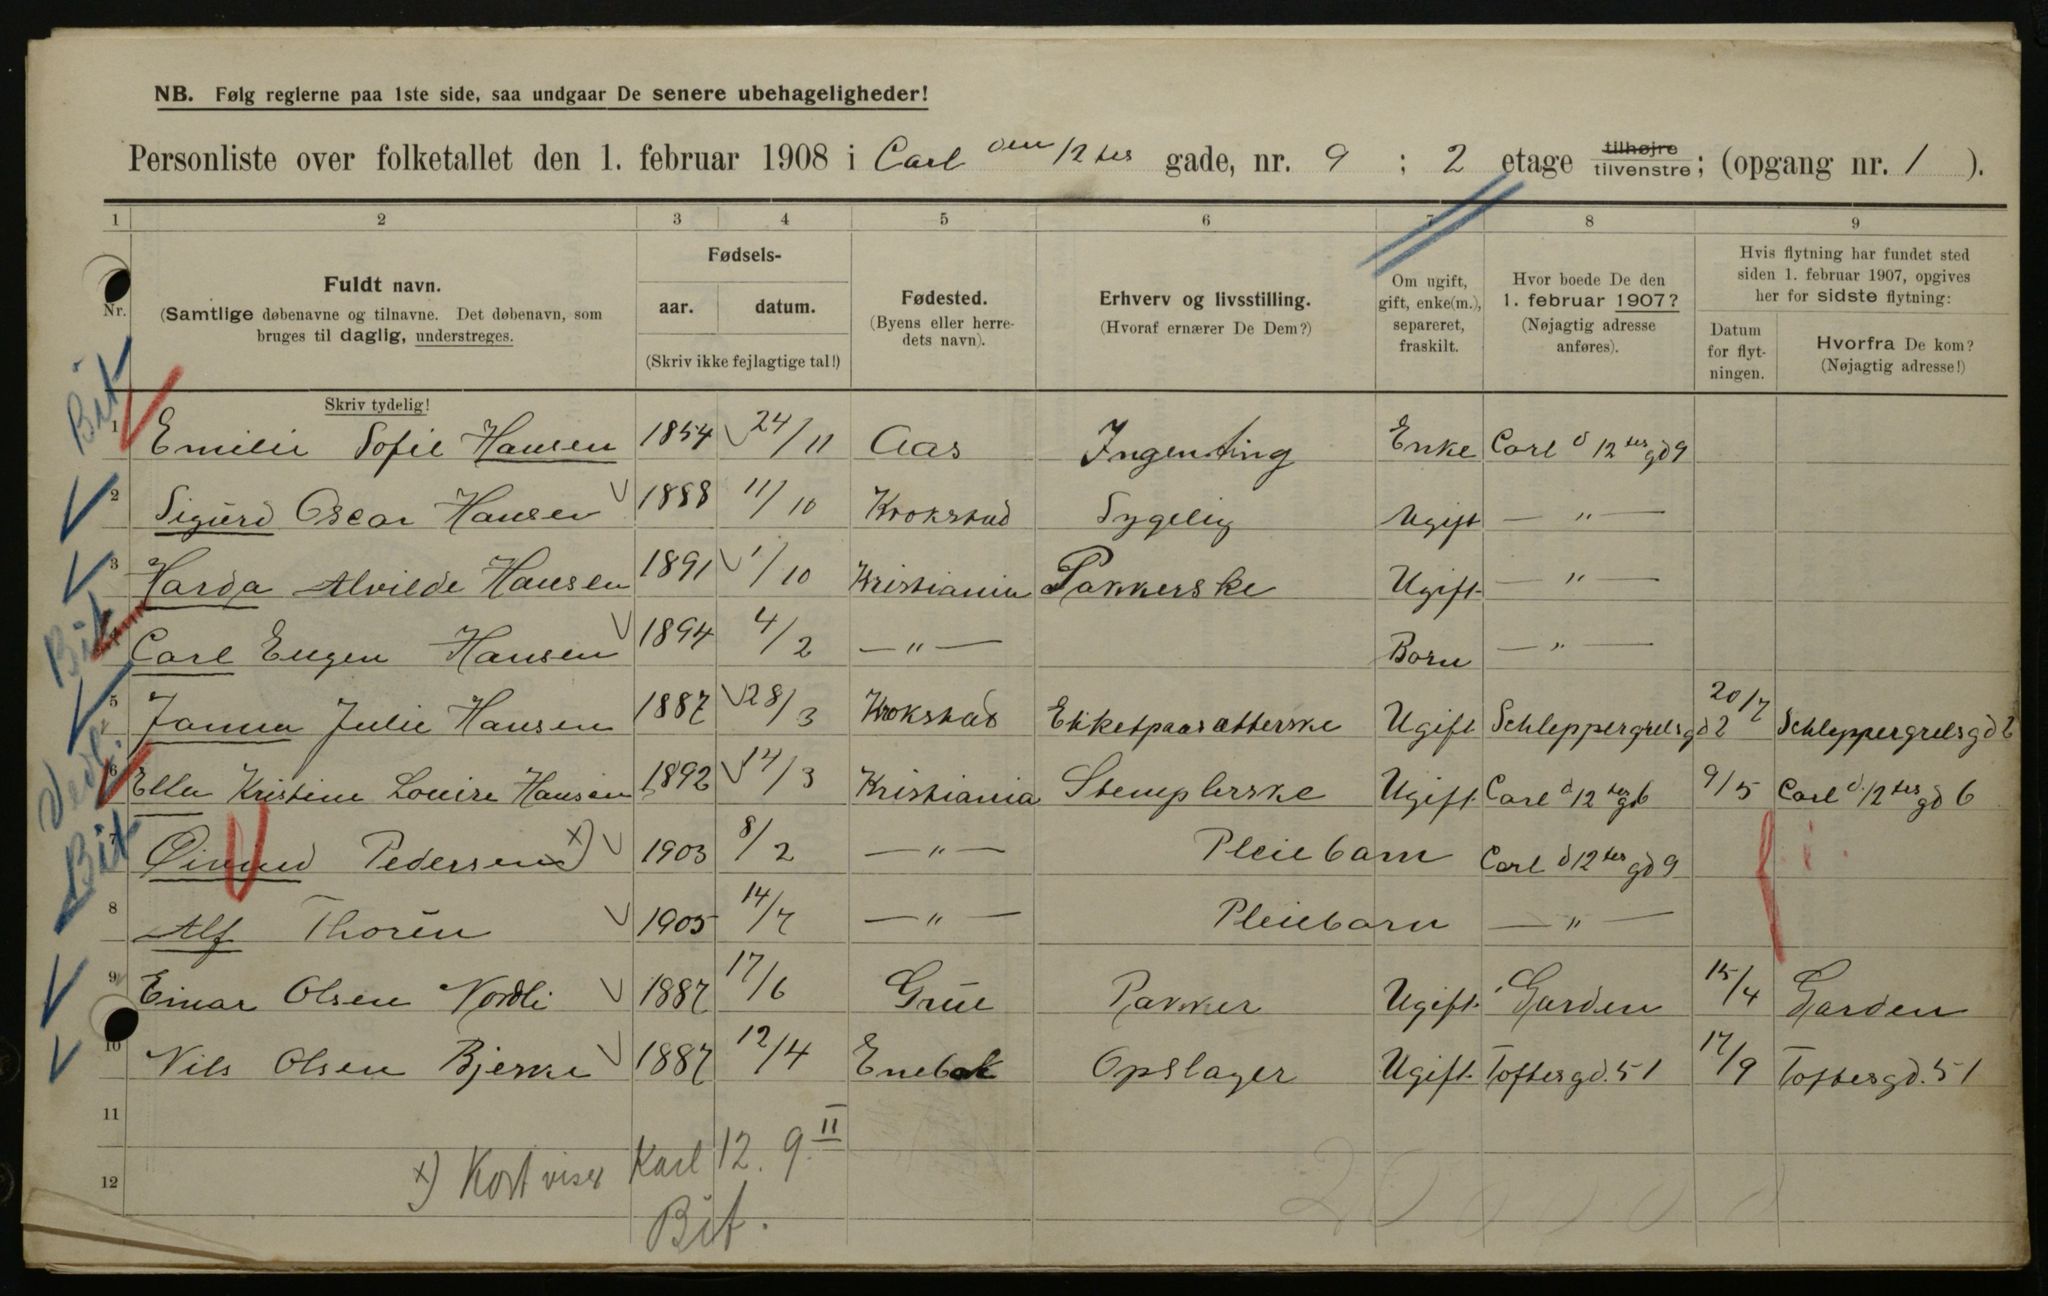 NB. Følg reglerne paa 1ste side, saa undgaar De senere ubehageligheder!
Personliste over folketallet den 1. februar 1908 i Carl den 12 tes gade, nr. 9 ; 2 etage tilhøjre tilvenstre; (opgang nr. 1 ).
1 2 3 4 5 6 7 8 9
Nr.
Fuldt navn.
(Samtlige døbenavne og tilnavne. Det døbenavn, som
bruges til daglig, understreges.
Skriv tydelig!
Fødsels-
aar. datum.
(Skriv ikke fejlagtige tal!)
Fødested.
(Byens eller herre-
dets navn).
Erhverv og livsstilling.
(Hvoraf ernærer De Dem?)
Om ugift,
gift, enke(m.),
separeret,
fraskilt.
Hvor boede De den
1. februar 1907?
(Nøjagtig adresse
anføres).
Hvis flytning har fundet sted
siden 1. februar 1907, opgives
her for sidste flytning:
Datum
for flyt-
ningen.
Hvorfra De kom?
(Nøjagtig adresse!)
Bit
1 Emilie Sofie Hansen 1854 24/11 Aas Ingenting Enke Carl d 12 tes gd 9
2 Sigurd Oscar Hansen 1888 11/10 Krokstad Sygelig Ugift — " —
3 Harda Alvilde Hansen 1891 1/10 Kristiania Pakkerske Ugift — " —
Bit
4 Carl Eugen Hansen 1894 4/2 — " — Barn — " —
5 Janna Julie Hansen 1887 28/3 Krokstad Etiketpaasætterske Ugift Schleppergrelsgd 2 20/7 Schleppergrelsgd 2
6 Ella Kristine Louise Hansen 1892 14/3 Kristiania Stemplerske Ugift Carl d 12 tes gd 6 9/5 Carl d. 12 tes gd 6
Bit
7 Øivind Pedersen x) 1903 8/2 — " — Pleiebarn Carl d 12 tes gd 9
8 Alf Thorén 1905 14/7 — " — Pleiebarn — " —
9 Einar Olsen Nordli 1887 17/6 Grue Pakker Ugift Garden 15/4 Garden
10 Nils Olsen Bjerke 1887 12/4 Enebak Opslager Ugift Toftesgd. 51 17/9 Toftesgd. 51
11
12
x) Kort viser Karl 12. 9 II
Bit.